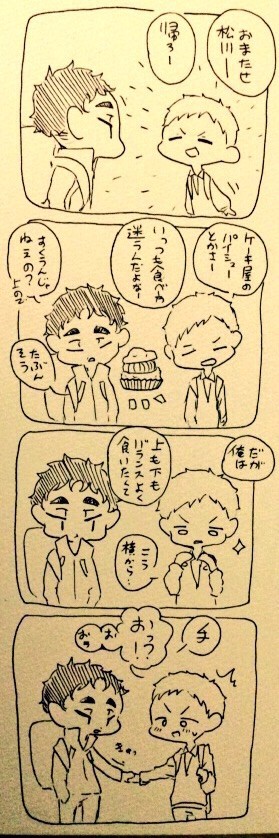 おまたせ
松川ー
帰ろー
ケーキ屋の
パイシュー
とかさー
いっつも食べ方
迷うんだよなー
すくうんじゃ
ねえの?
上ので
たぶん
そう
だが
俺は
上も下も
バランスよく
食いたくて
こう
横から?
チ
おっつ
ー!
お
ぎゅっ